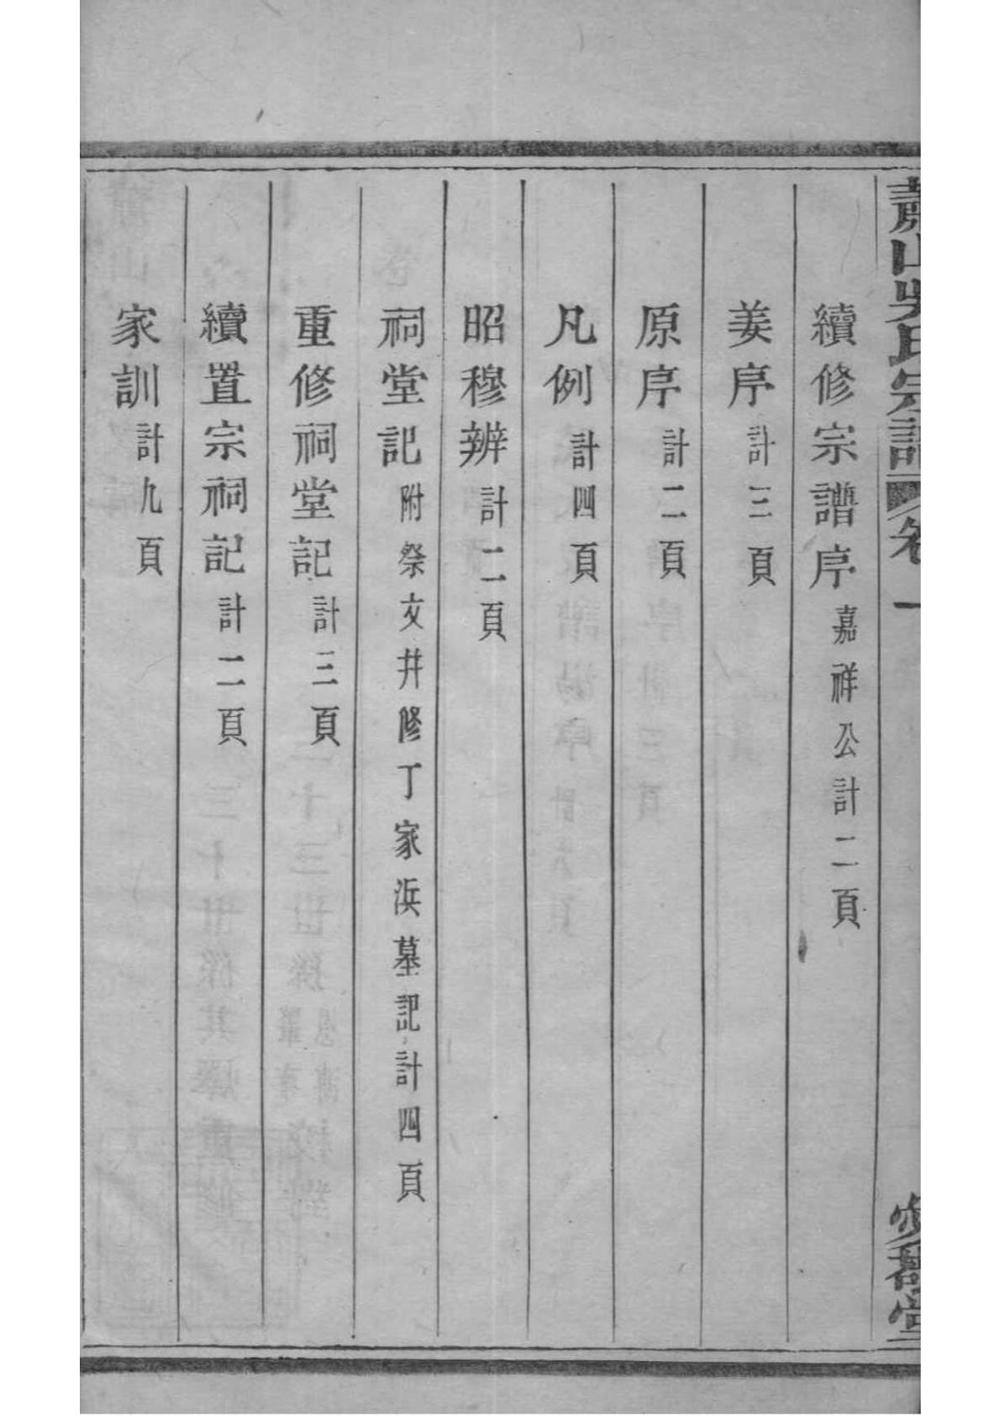 蕭山吳氏宗譜 卷一
愛敬堂
續修宗譜序 嘉祥公計二頁
姜序 計三頁
原序 計二頁
凡例 計四頁
昭穆辨 計二頁
祠堂記 附祭文并修丁家浜墓記計四頁
重修祠堂記 計三頁
續置宗祠記 計二頁
家訓 計九頁